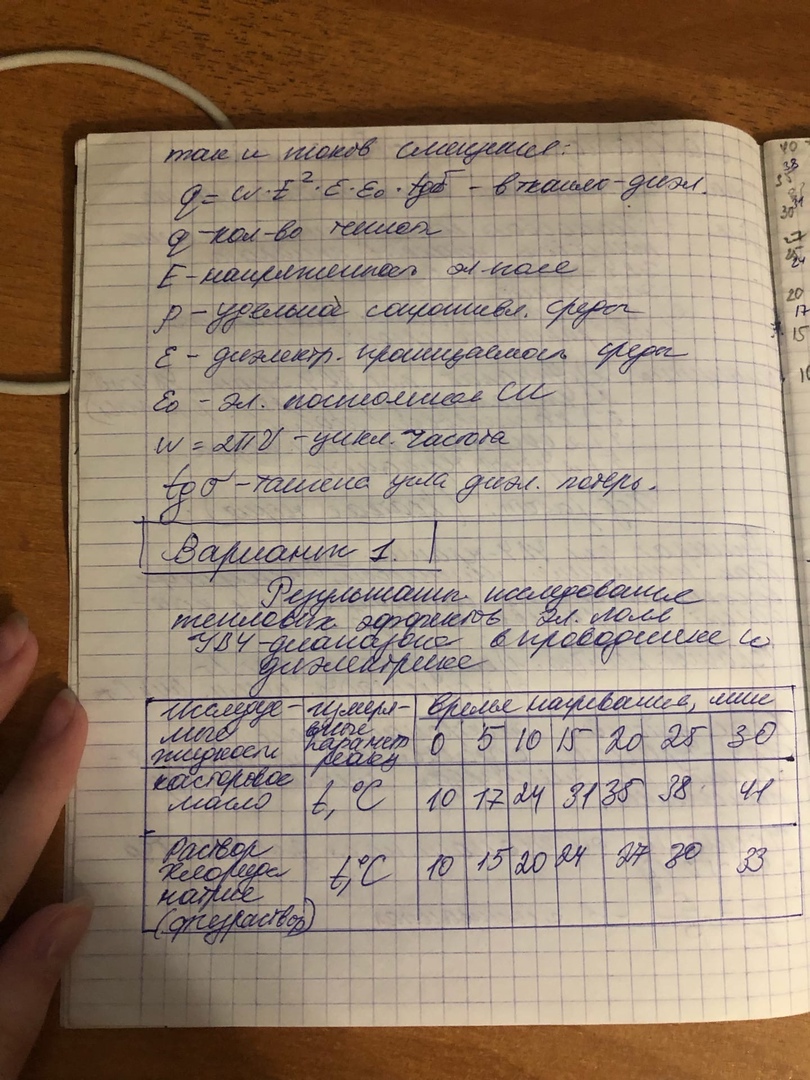 так и токов смещения:
q = w·E²·ε·ε₀·tgδ - в тканях-диэл.
q - кол-во теплоты
E - напряженность эл. поле
ρ - удельное сопротивл. среды
ε - диэлектр. проницаемость среды
ε₀ - эл. постоянная СИ
w = 2πν - цикл. частота
tgσ - тангенс угла диэл. потерь.
Вариант 1.
Результаты исследования
тепловых эффектов эл. поля
УВЧ-диапазона в проводнике и
диэлектрике
Исследуе-
мые
жидкости
измеря-
емые
парамет
время нагревания, мин
0 5 10 15 20 25 30
касторовое
масло
t, °C 10 17 24 31 35 38 41
Раствор
хлорида
натрия
(физраствор)
t, °C 10 15 20 24 27 30 33
40
38
35
31
30
27
25
24
20
17
15